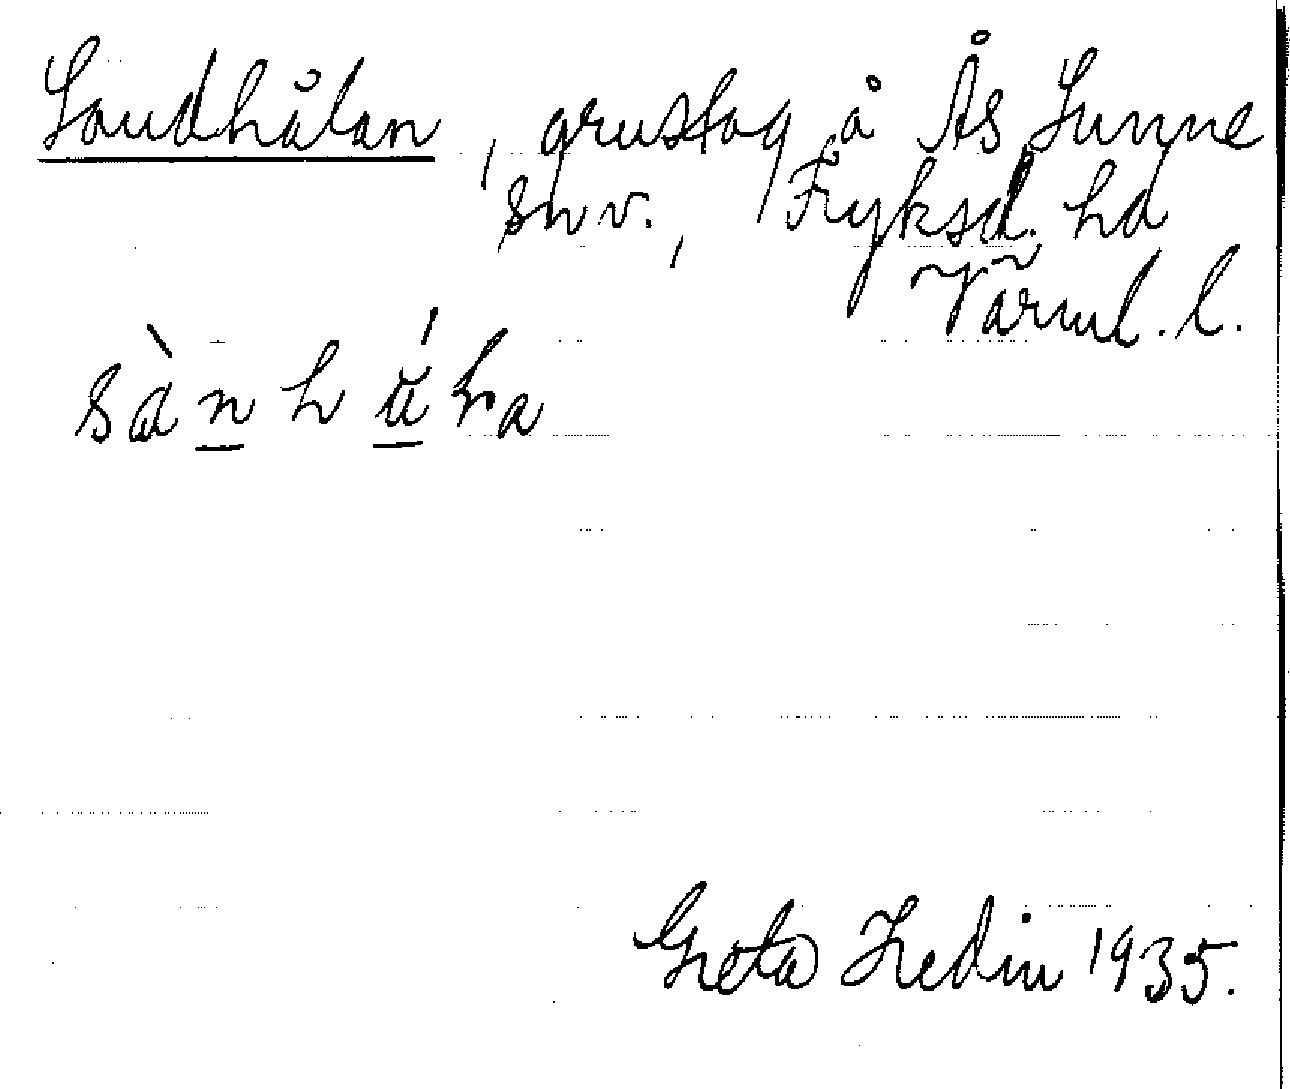 Sandhålan, grustag å Ås Sunne
snv., Fryksd. hd
Värml. l.
Greta Hedin 1935.